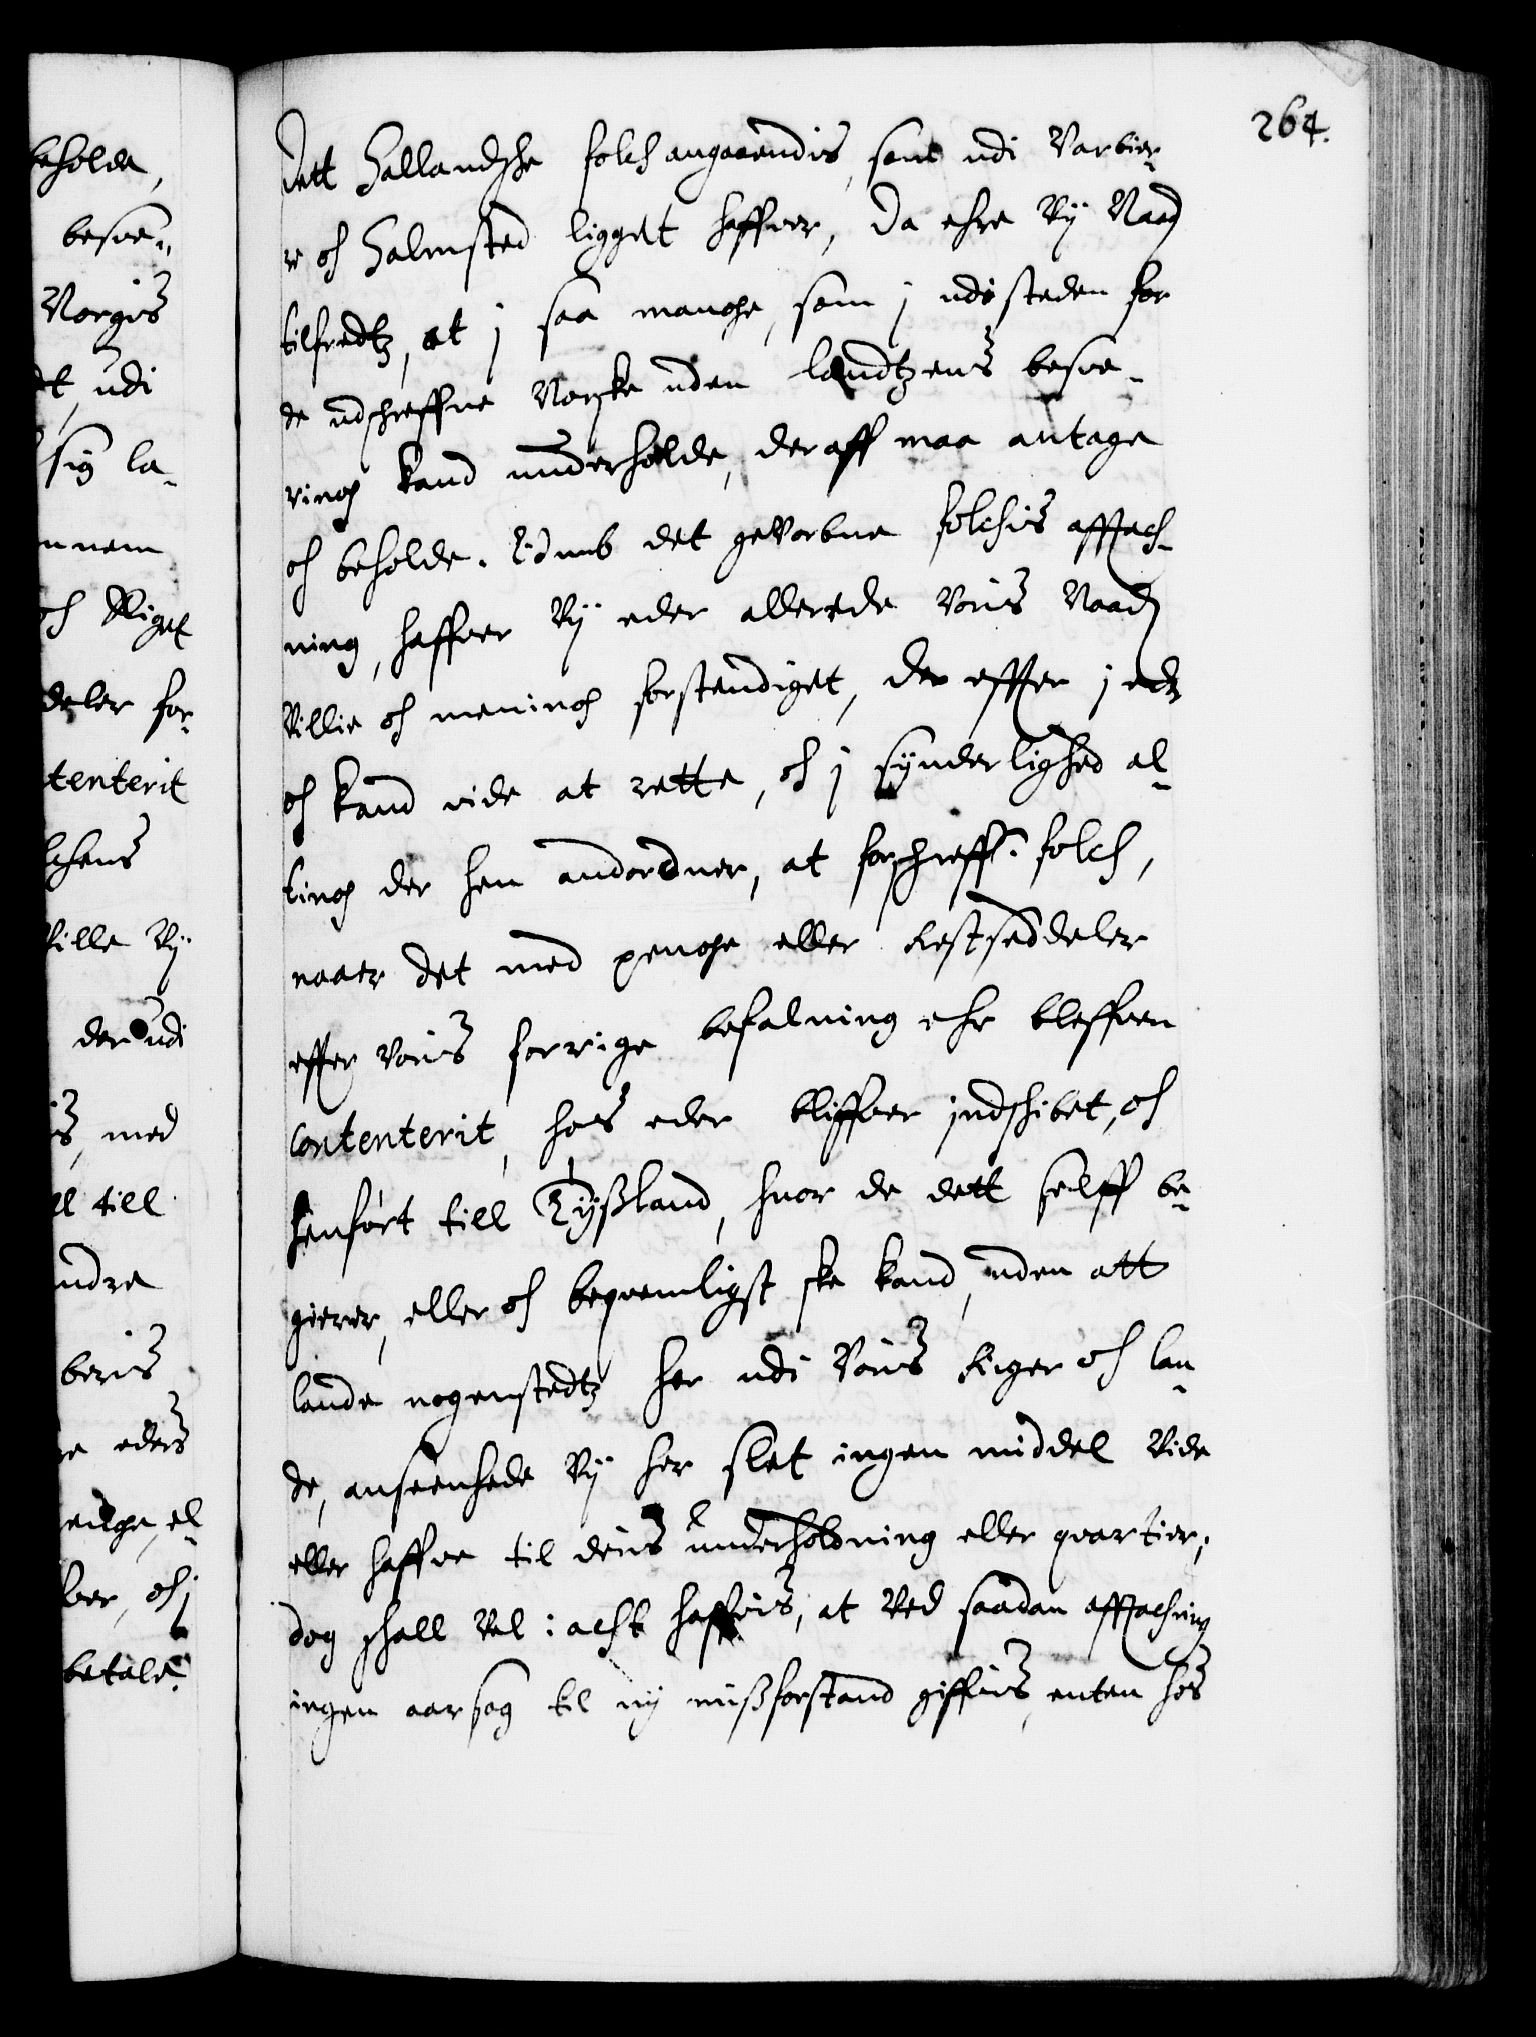 264.
Dett Hallandsche folch angaaendis, som udi Varbier-
re och Halmsted ligget haffver, Da ehre Vy Naad
tilfredtz, at j saa mange, som j udi steden for
de udschreffne Norske uden landtzens besve-
ring kand underholde, der aff maa antage
och beholde. Udi det geVorbne folchis afftach-
ning, haffver Vy eder allerede Voris Naad
Villie och mening forstendiget, der effter j eder
och kand vide at rette, och j synderlighed al-
ting der hen andordner, at forschreffne folch,
naaer det med penge eller Restseddeler
effter Voris forrige befalning ehr bleffven
contenterit, hos eder bliffver indschibet, och
henfört till Tyßland, hvor de dett selff be-
gierer, eller och beqvemligst ske kand, uden att
lande nogenstedtz her udi Voris Riger och lan-
de, anseenhede Vy her slet ingen middel Vide
eller haffve til deris underholdning eller qvartier,
dog schall Vel i acht haffvis, at Ved saadan afftachning
ingen aarsag til ny mißforstand giffvis, enten hos
beholde,
besve-
Norgis
dt, udi
sig la-
nnem
och Riget
deler for-
tenterit
lchens
Ville Vy
der udi
is, med
el till
undre
beris
re eders
enge, el-
ber, och j
betale.